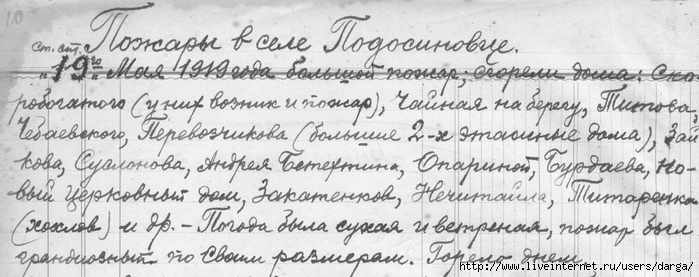 10
Пожары в селе Подосиновце.
ст. ст.
"19го" Мая 1919 года большой пожар; сгорели дома: Ско-
робогатого (у них возник и пожар), Чайная на берегу, Титова,
Чебаевского, Перевозчикова (большие 2-х этажные дома), Зай
кова, Суслонова, Андрея Бетехтина, Опариной, Бурдаева, но-
вый церковный дом, Закатенков, Нечитайла, Титаренка
(хохлов) и др. - Погода была сухая и ветреная, пожар был
грандиозный по своим размерам. Горело днем,
http://www.liveinternet.ru/users/darga/